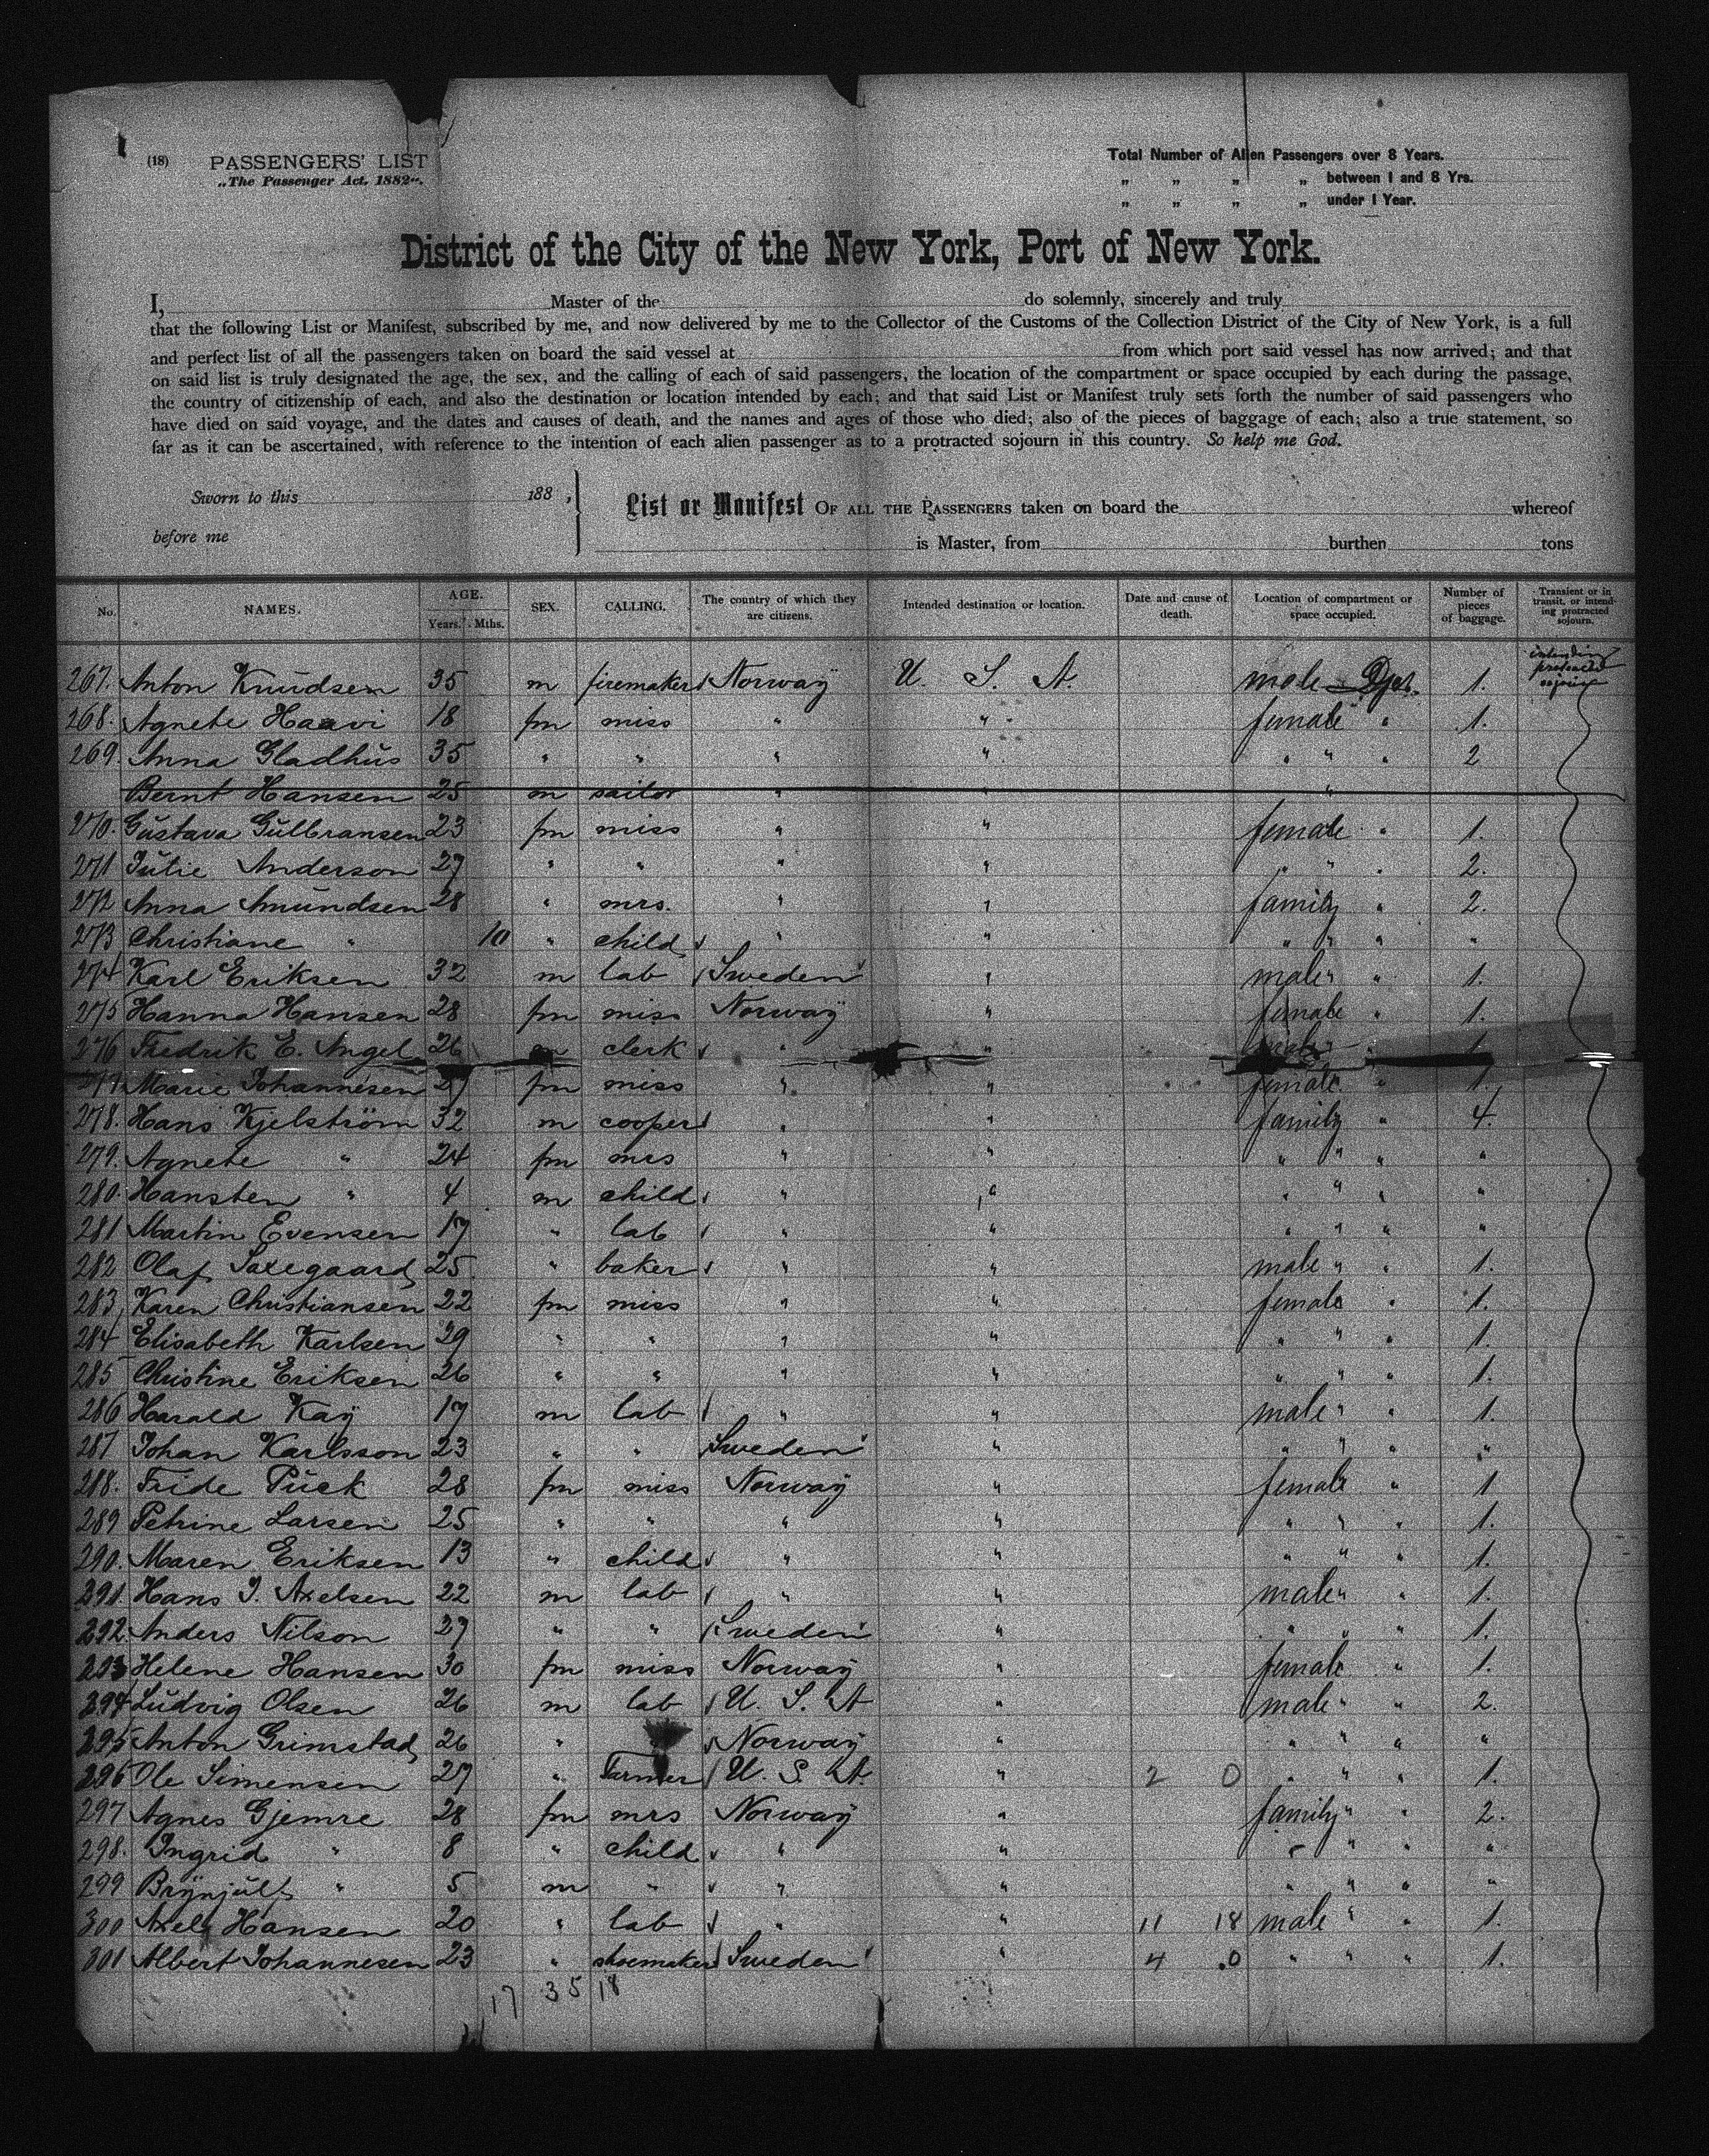 (18) PASSENGERS' LIST
„The Passenger Act, 1882“.
Total Number of Alien Passengers over 8 Years.
„ „ „ „ between 1 and 8 Yrs.
„ „ „ „ under 1 Year.
District of the City of the New York, Port of New York.
I, Master of the do solemnly, sincerely and truly
that the following List or Manifest, subscribed by me, and now delivered by me to the Collector of the Customs of the Collection District of the City of New York, is a full
and perfect list of all the passengers taken on board the said vessel at from which port said vessel has now arrived; and that
on said list is truly designated the age, the sex, and the calling of each of said passengers, the location of the compartment or space occupied by each during the passage,
the country of citizenship of each, and also the destination or location intended by each; and that said List or Manifest truly sets forth the number of said passengers who
have died on said voyage, and the dates and causes of death, and the names and ages of those who died; also of the pieces of baggage of each; also a true statement, so
far as it can be ascertained, with reference to the intention of each alien passenger as to a protracted sojourn in this country. So help me God.
Sworn to this 188 ,
before me
List or Manifest OF ALL THE PASSENGERS taken on board the whereof
is Master, from burthen tons
No. NAMES. AGE. Years. Mths. SEX. CALLING. The country of which they are citizens. Intended destination or location. Date and cause of death. Location of compartment or space occupied. Number of pieces of baggage. Transient or in transit, or intending protracted sojourn.
267. Anton Knudsen 35 m firemaker Norway U. S. A. male Dpt. 1. intending protracted sojourn
268. Agnete Haavi 18 fm miss " " female " 1.
269. Anna Gladhus 35 " " " " " " " 2
Bernt Hansen 25 m sailor " " "
270. Gustava Gulbransen 23 fm miss " " female " 1.
271 Julie Anderson 27 " " " " " " " 2.
272 Anna Amundsen 28 " mrs. " " family " 2.
273 Christiane " 10 " child " " " " " "
274 Karl Eriksen 32 m lab Sweden " male " " 1.
275 Hanna Hansen 28 fm miss Norway " female " 1.
276 Fredrik E. Angel 26 m clerk " " male " 1
277 Marie Johannesen 27 fm miss " " female " 1.
278. Hans Kjelström 32 m cooper " " family " 4.
279. Agnete " 24 fm mrs " " " " " "
280. Hansten " 4 m child " " " " " "
281 Martin Evensen 17 " lab " " " " " "
282 Olaf Saxegaard 25. " baker " " male " " 1.
283 Karen Christiansen 22 fm miss " " female " 1.
284 Elisabeth Karlsen 29 " " " " " " " 1.
285 Christine Eriksen 26 " " " " " " " 1.
286 Harald Kay 17 m lab " " male " " 1.
287 Johan Karlsson 23 " " Sweden " " " " "
288. Fride Puck 28 fm miss Norway " female " 1
289 Petrine Larsen 25 " " " " " " " 1.
290. Maren Eriksen 13 " child " " " " " 1.
291. Hans J. Axelsen 22 m lab " " male " " 1.
292. Anders Nilson 27 " " Sweden " " " " 1.
293 Helene Hansen 30 fm miss Norway " female " 1.
294 Ludvig Olsen 26 m lab U. S. A " male " " 2.
295 Anton Grimstad 26 " Norway " " " " "
296 Ole Simensen 27 " Farmer U. S. A. " 2 0 " " " 1.
297 Agnes Gjemre 28 fm mrs Norway " family " " 2.
298. Ingrid " 8 " child " " " " " "
299 Brynjulf " 5 m " " " " " " "
300 Axel Hansen 20 " lab " " 11 18 male " " 1.
301 Albert Johannesen 23 " shoemaker Sweden " 4 .0 " " " 1.
17 35 18